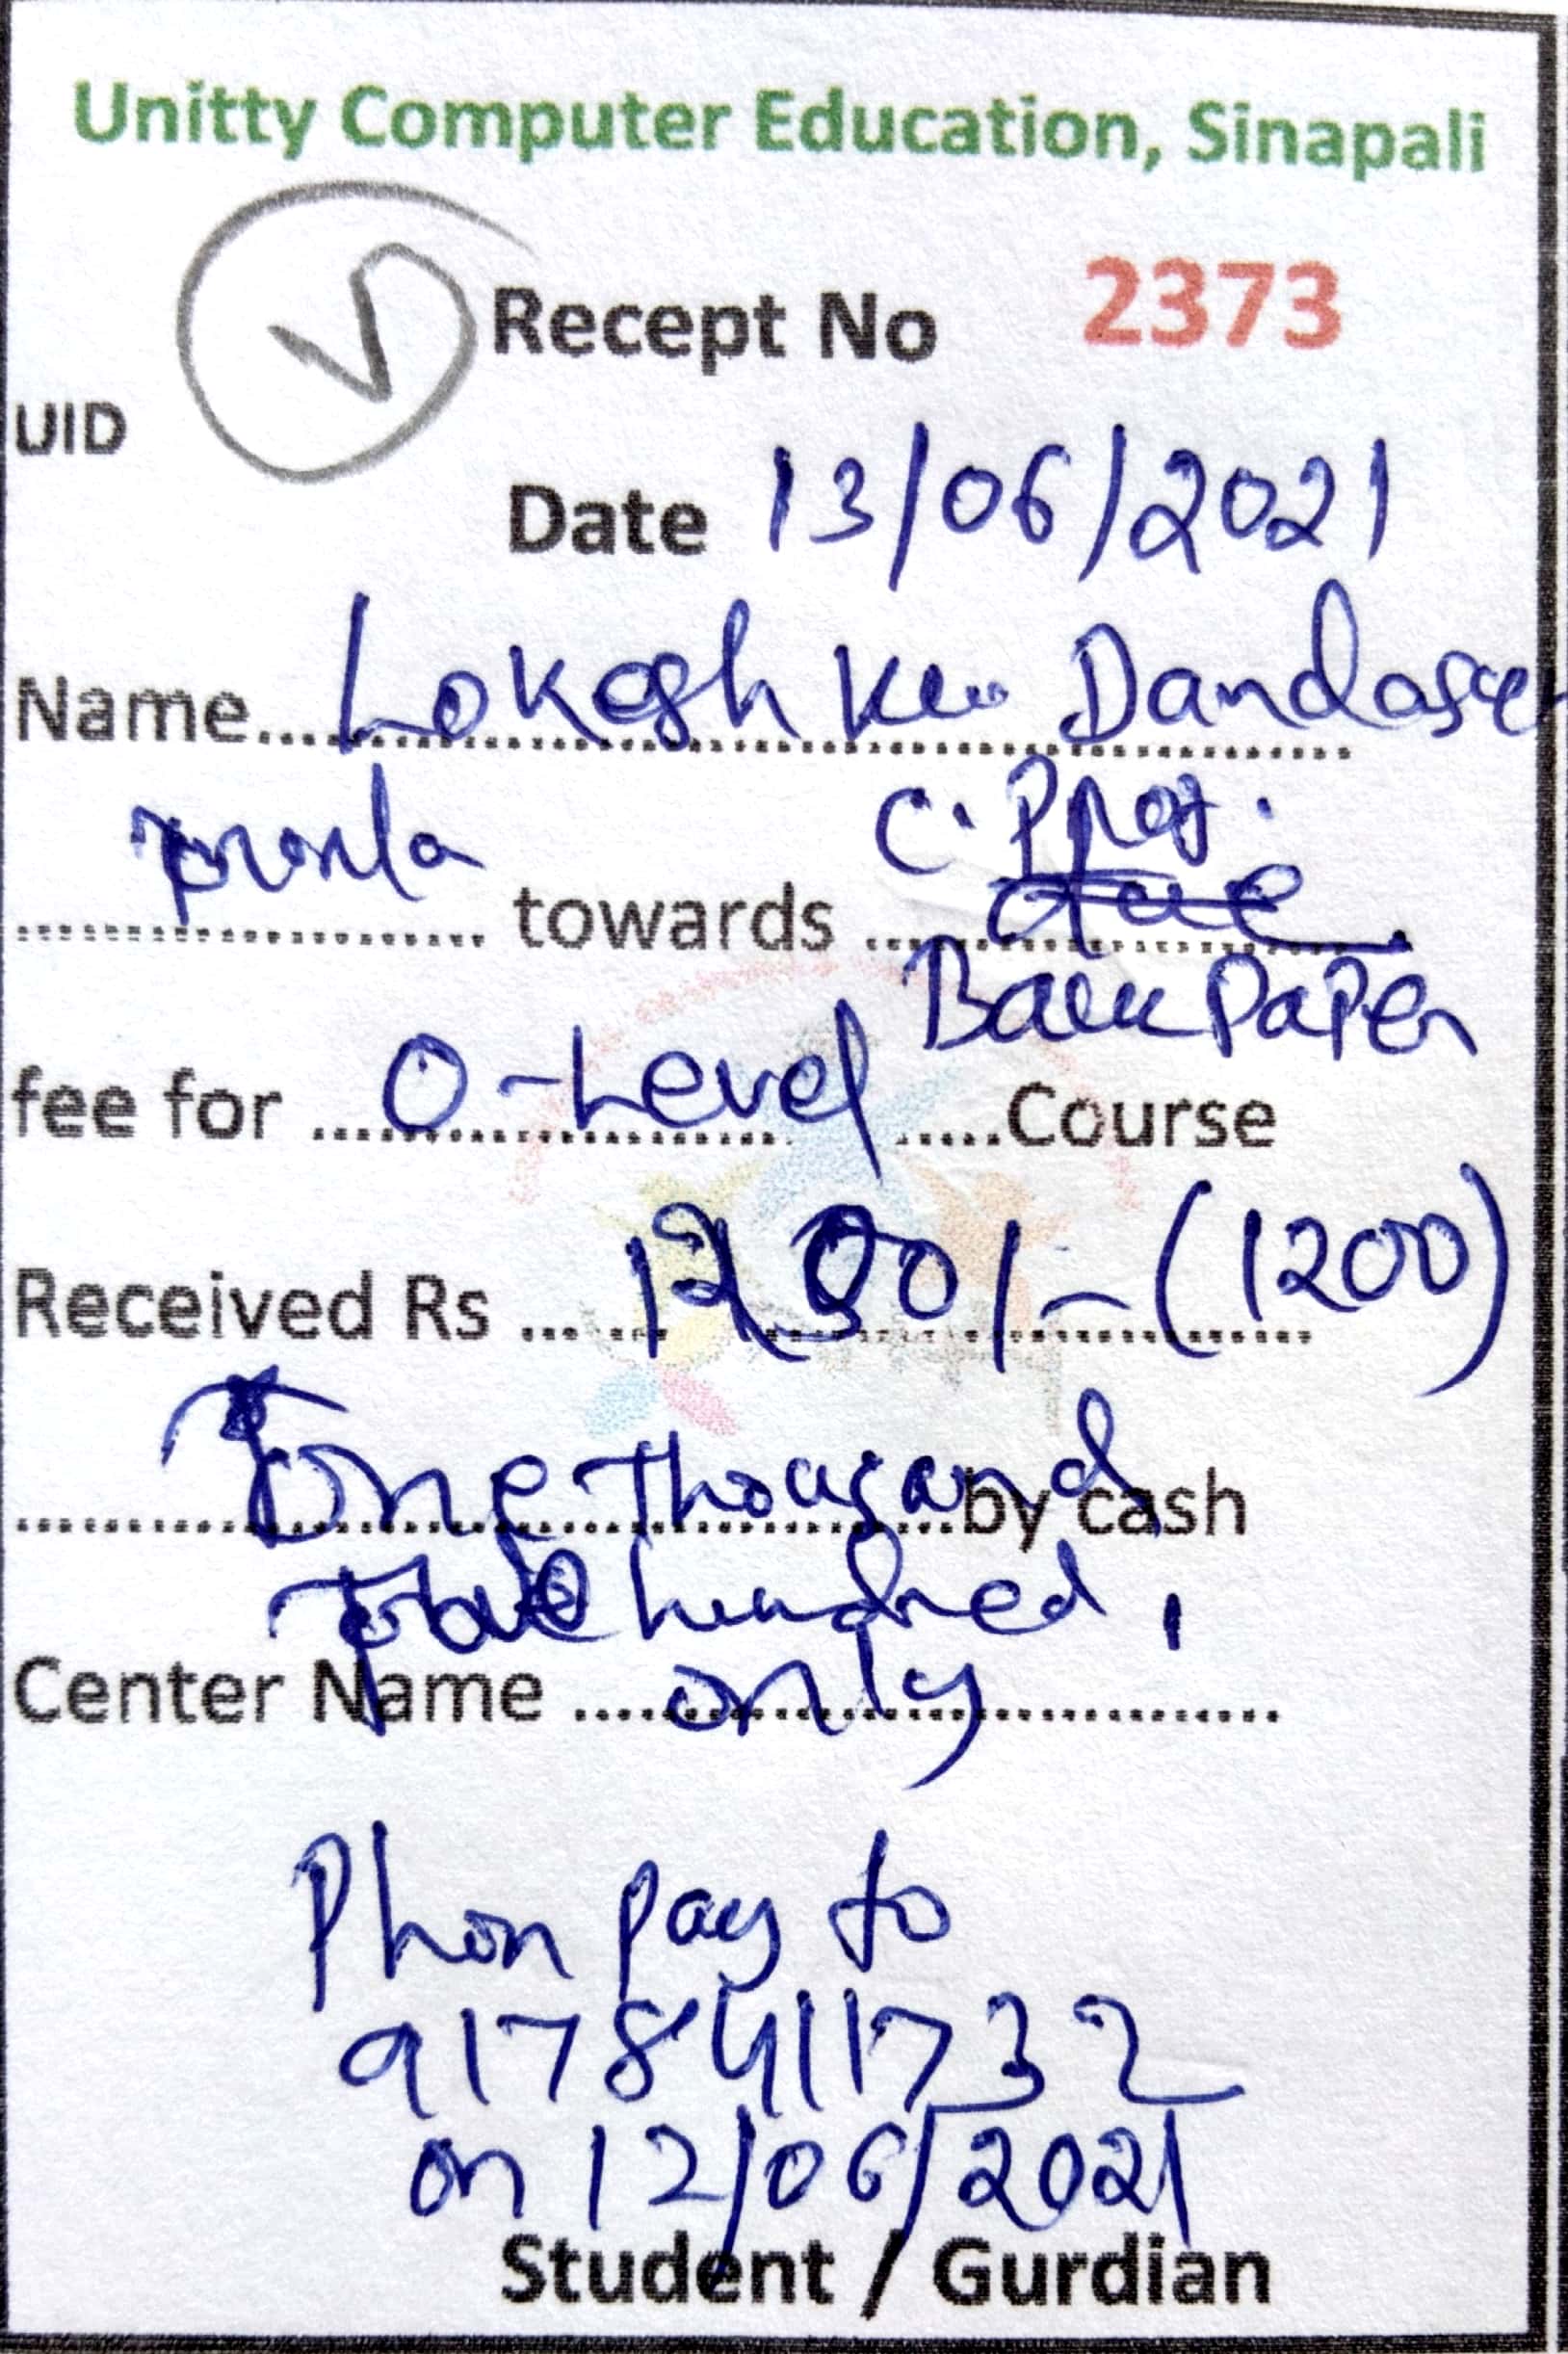 Unitty Computer Education, Sinapali
Recept No 2373
UID
Date 13/06/2021
Name Lokesh Ku. Dandase
C. Prog.
towards
Back Paper
fee for O-Level Course
Received Rs 1200/- (1200)
One Thousand by cash
hundred,
Center Name only
Phon pay to
9178411732
on 12/06/2021
Student / Gurdian